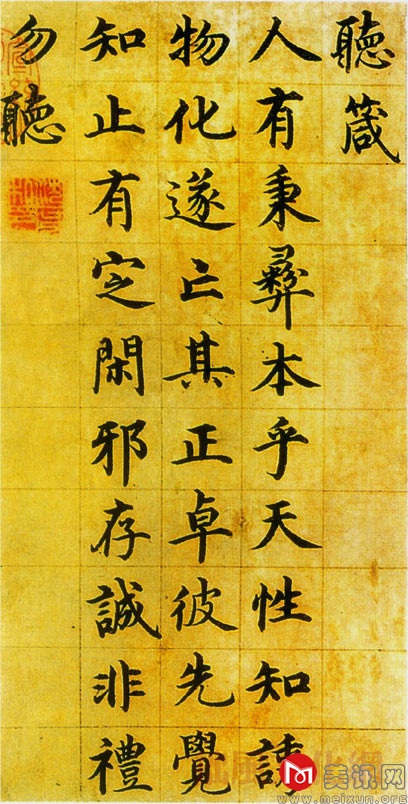 聽箴
人有秉彝本乎天性知誘
物化遂亡其正卓彼先覺
知止有定閑邪存誠非禮
勿聽
美讯网
www.meixun.org